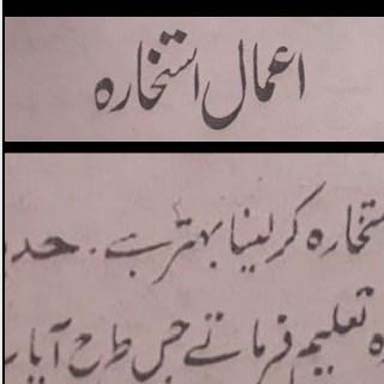 اعمال استخارہ
ستخارہ کر لینا بہتر ہے۔ حد
ہ تعلیم فرماتے جس طرح آیا